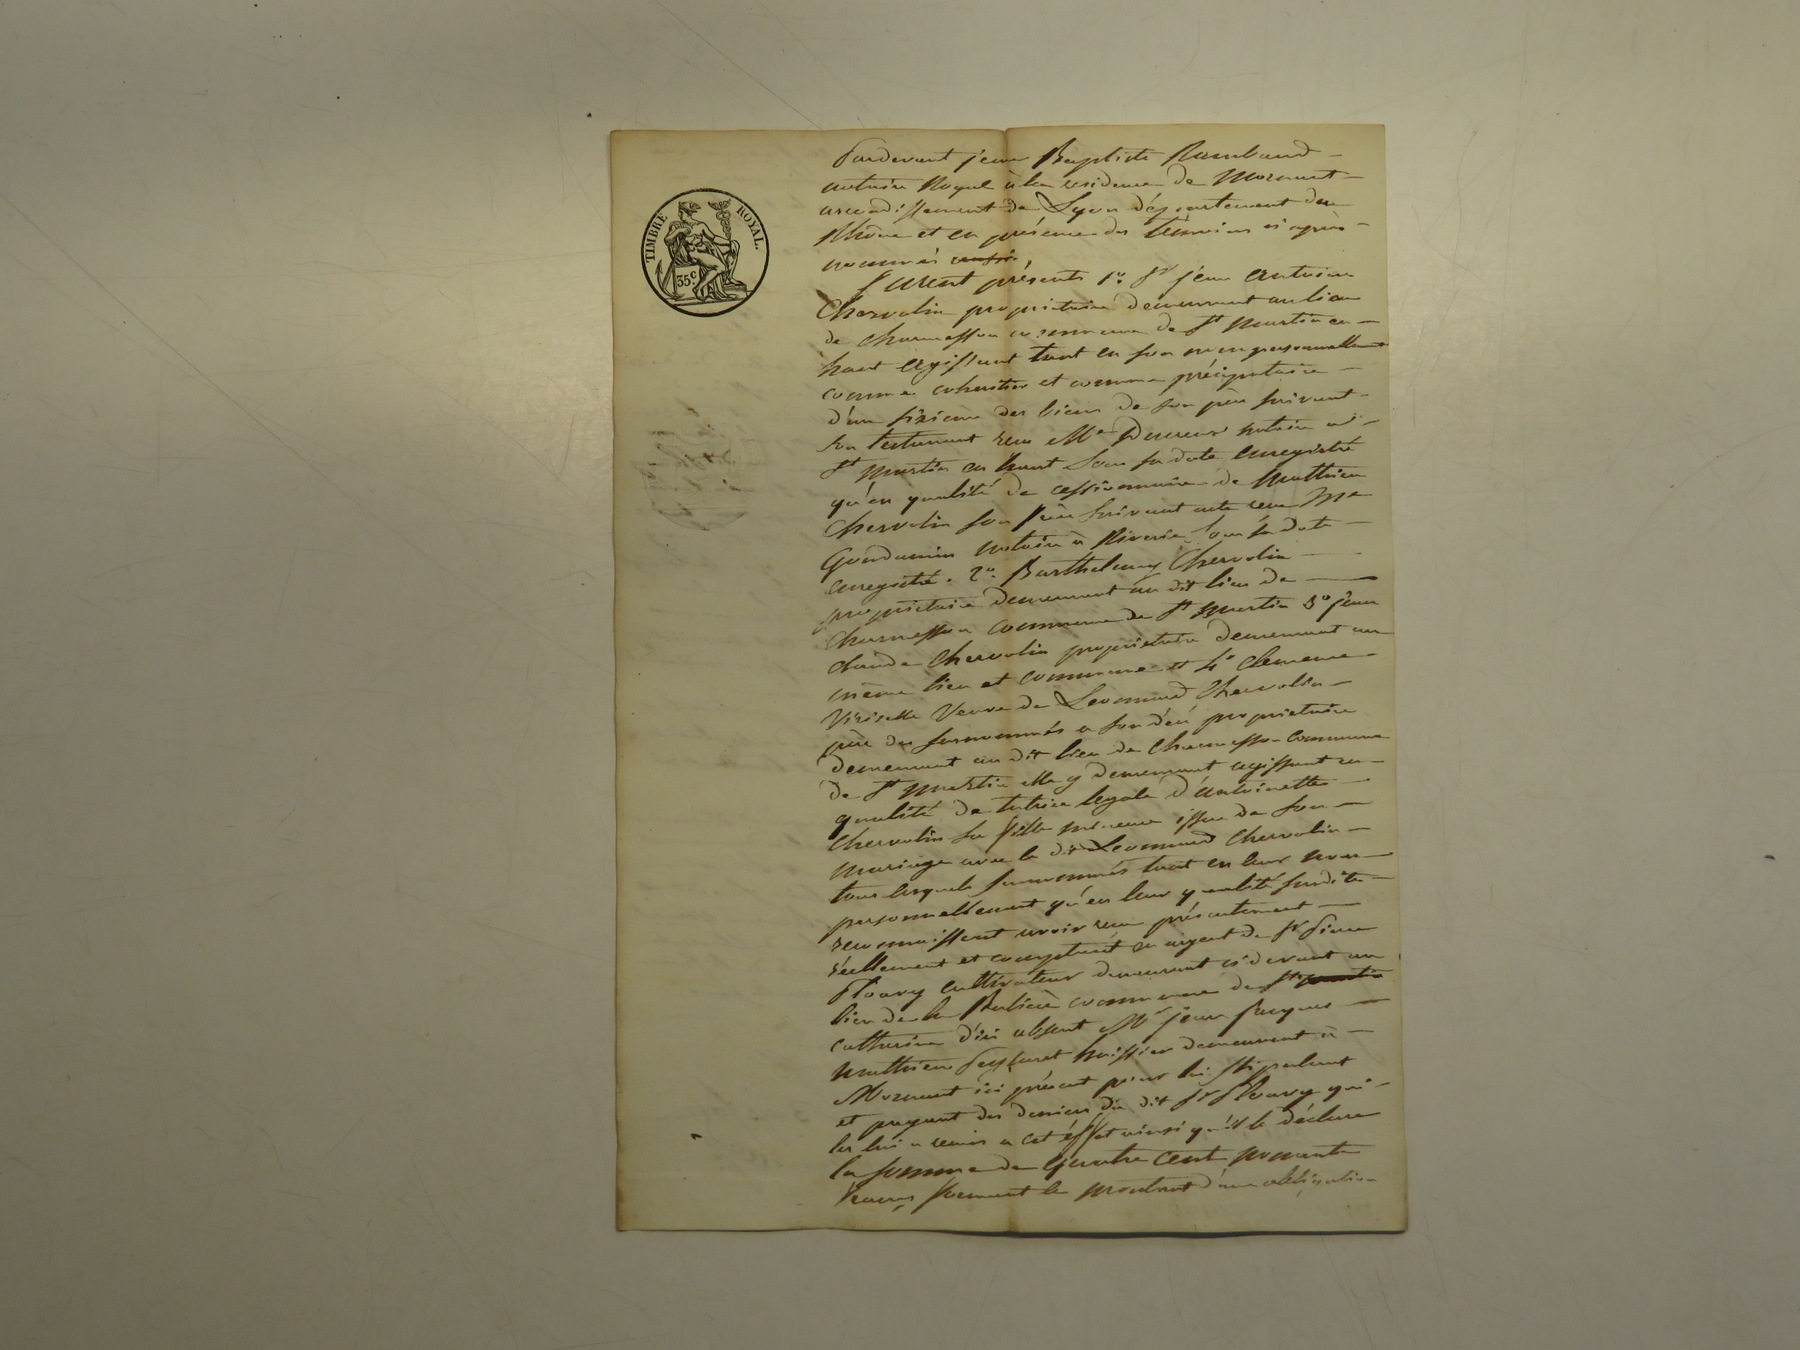 TIMBRE ROYAL.
35c.
Pardevant jean Baptiste Rambaud
notaire Royal à la residence de Mornant
arrondissement de Lyon département du
Rhône et en présence des témoins ci après
nommés
furent présents 1° Sr jean antoine
Chervolin propriétaire demeurant au lieu
de commune de St Martin en
haut agissant tant en son nom personnellement
comme cohéritier et comme préciputaire
d'un sixieme des biens de son père suivant
son testament reçu Me notaire à
St Martin en haut sous sa date enregistré
qu'en qualité de cessionnaire de Mathieu
Chervolin son frère suivant acte reçu Me
notaire à Riverie sous sa date
enregistré. 2° Barthelemy Chervolin
propriétaire demeurant au dit lieu de
commune de St Martin 3° jean
claude Chervolin propriétaire demeurant au
même lieu et commune et 4° Clemence
Veuve de Leonard Chervolin
père des surnommés a son décé propriétaire
demeurant au dit lieu de commune
de St Martin elle y demeurant agissant en
qualité de tutrice legale d'antoinette
Chervolin sa fille mineure issue de son
mariage avec le dit Leonard Chervolin
tous lesquels surnommés tant en leur nom
personnellement qu'en leur qualité susdite
reconnaissent avoir reçu présentement
réellement et comptant en argent de Sr Pierre
Floury cultivateur demeurant ci devant au
lieu de la commune de St
catherine d'ici absent Mr jean jacques
Mathieu huissier demeurant à
Mornant ici présent pour lui stipulant
et payant des deniers du dit Sr Floury qui
les lui a remis a cet effet ainsi qu'il le déclare
la somme de quatre cent
francs formant le montant d'une obligation